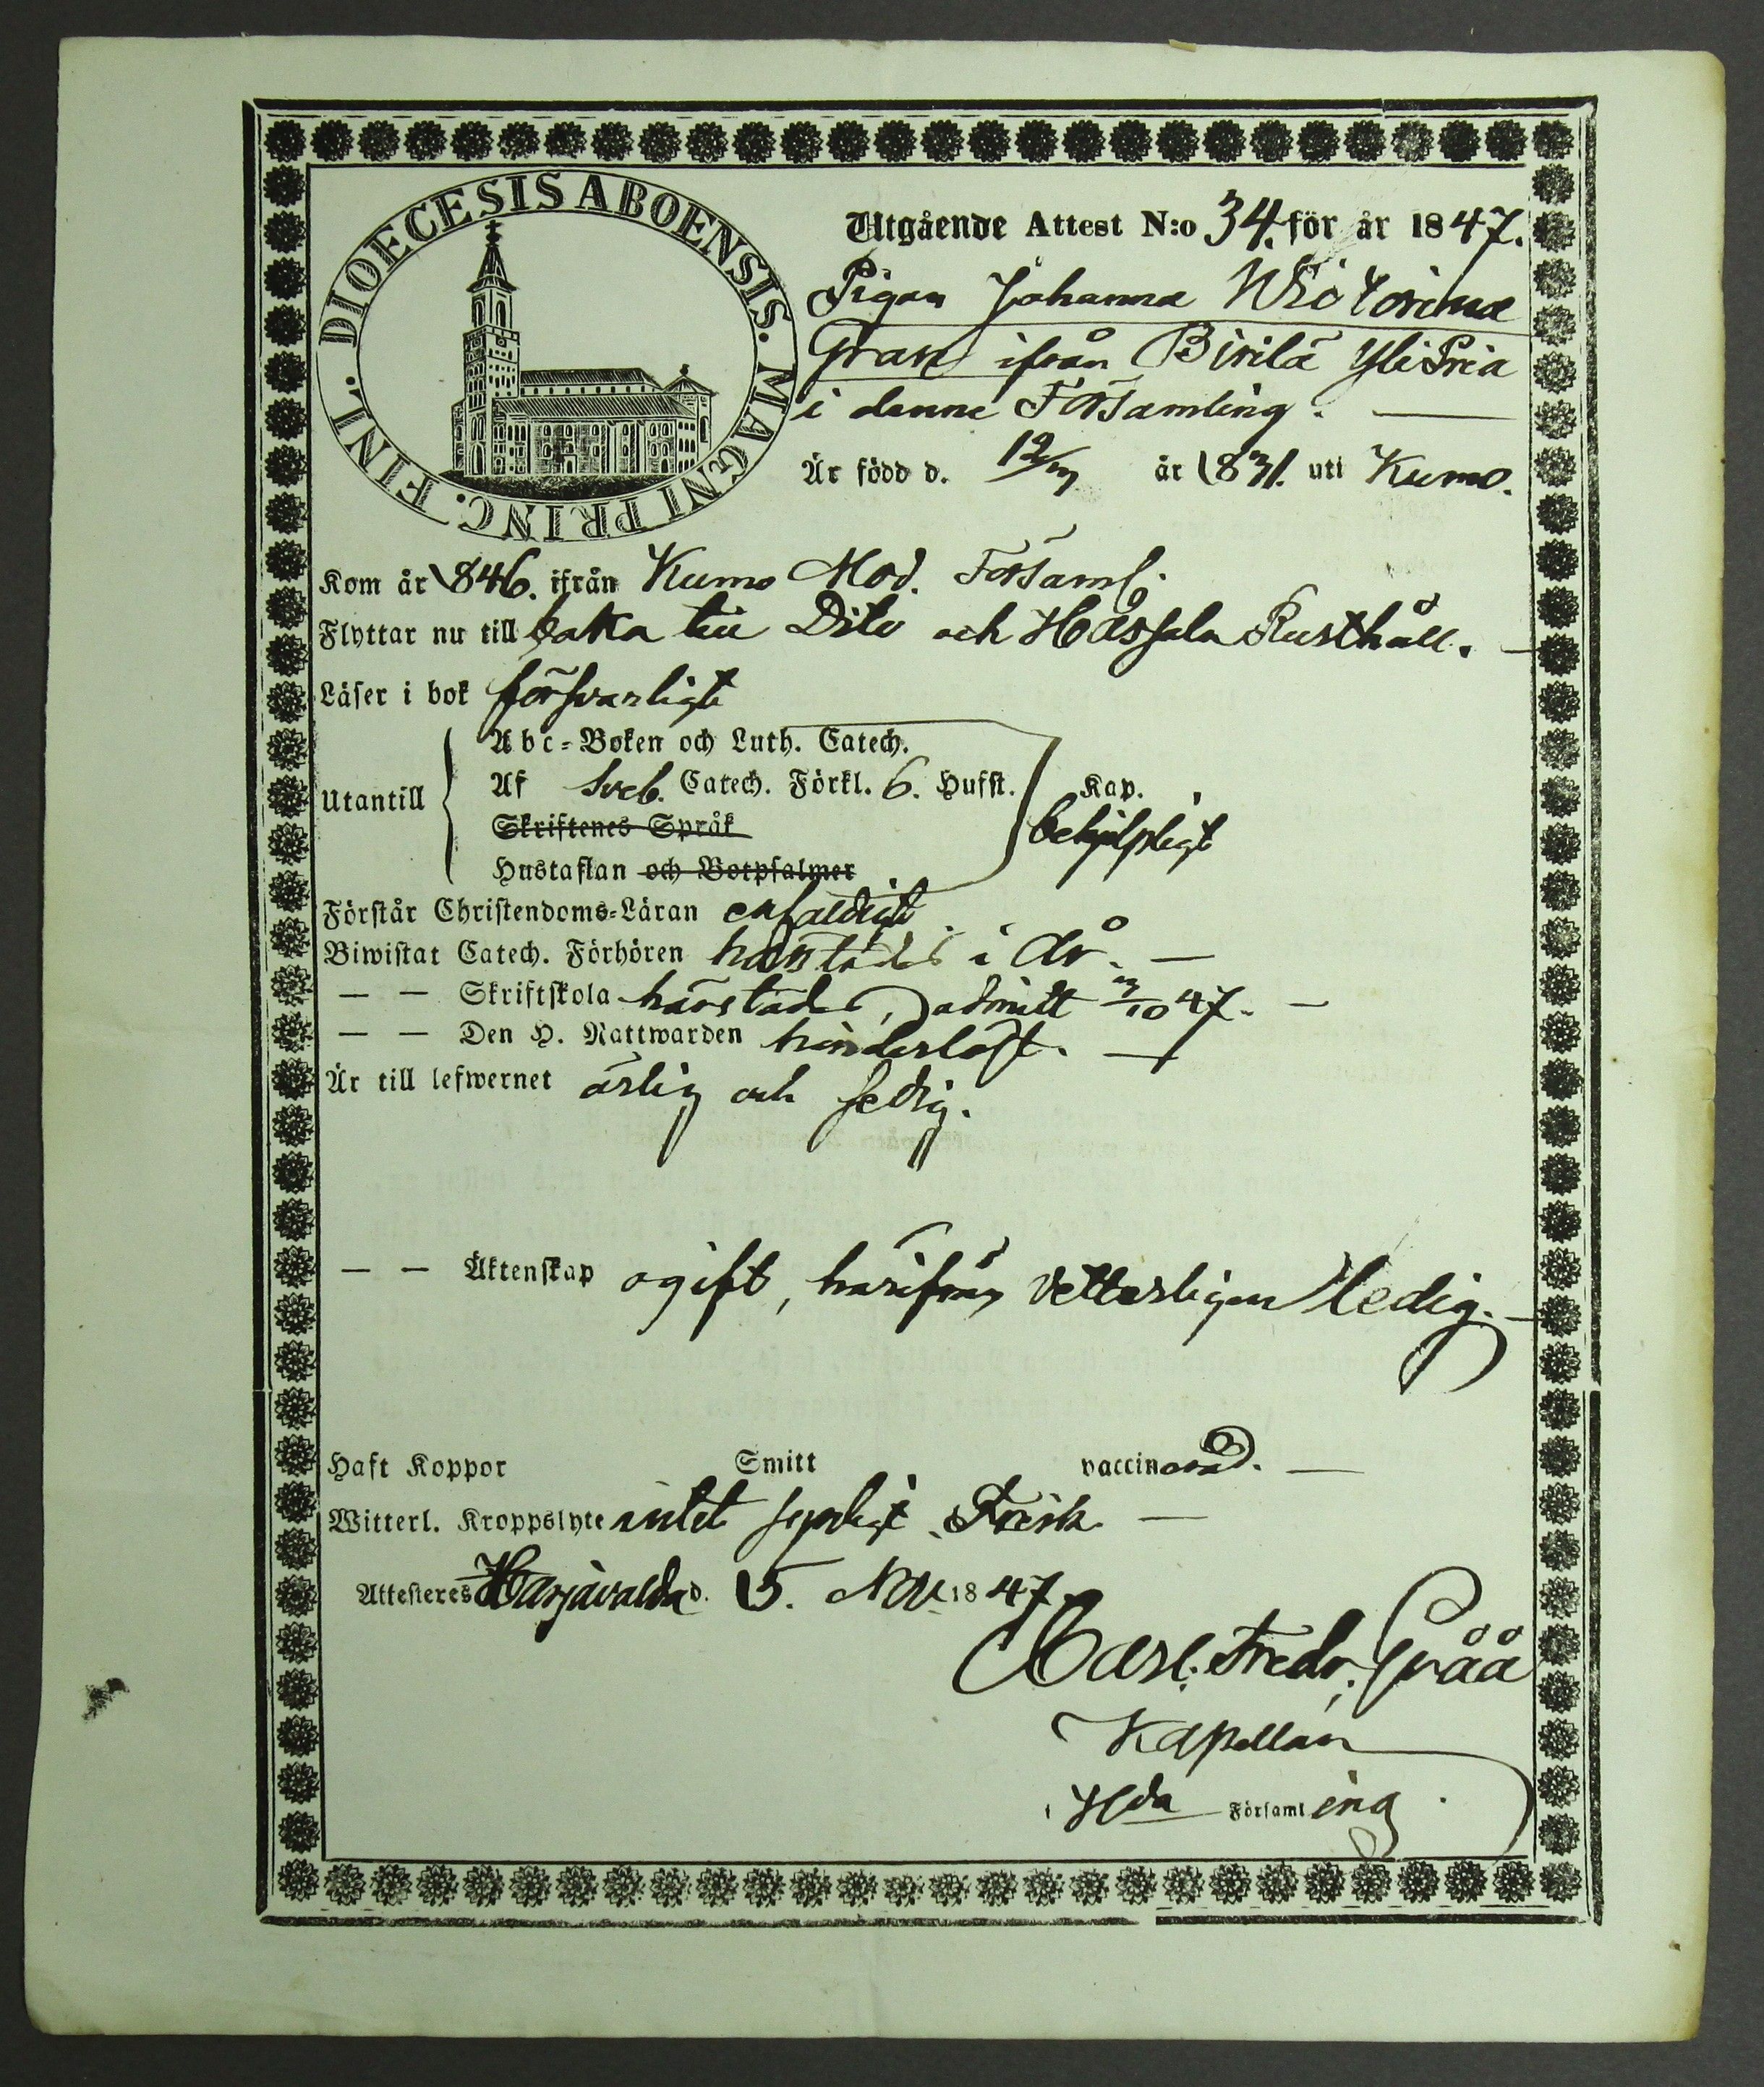 DIOECESIS ABOENSIS. MAGNI PRINC. FINL.
Utgående Attest N:o 34. för år 1847.
Pigan Johanna Victorina
Gran ifrån Birilä Ylistria
i denne Församling.
Är född d. 12/7 år 1831. uti Kumo.
Kom år 1846. ifrån Kumo Mod. Församl.
Flyttar nu till baka till Dito och Hassala Rusthåll.
Läser i bok försvarligt
Utantill
Abc-Boken och Luth. Catech.
Af Sveb. Catech. Förkl. 6. Hufst. Kap.
Skriftenes Språk
behjelpligt
Hustaflan och Botpsalmer
Förstår Christendoms-Läran enfaldigt
Biwistat Catech. Förhören härstädes i år. —
— — Skriftskola härstädes, admitt 3/10 47. —
— — Den H. Nattwarden hinderlöst. —
Är till lefwernet ärlig och sedig.
— — Äktenskap ogift, härifrån vetterligen ledig. —
Haft Koppor Smitt vaccinerad. —
Witterl. Kroppslyte intet synligt. Frisk —
Attesteres Harjavalda d. 5. Nov 1847.
Carl. Fredr. Gråå
Kapellan
i Hda Församling.